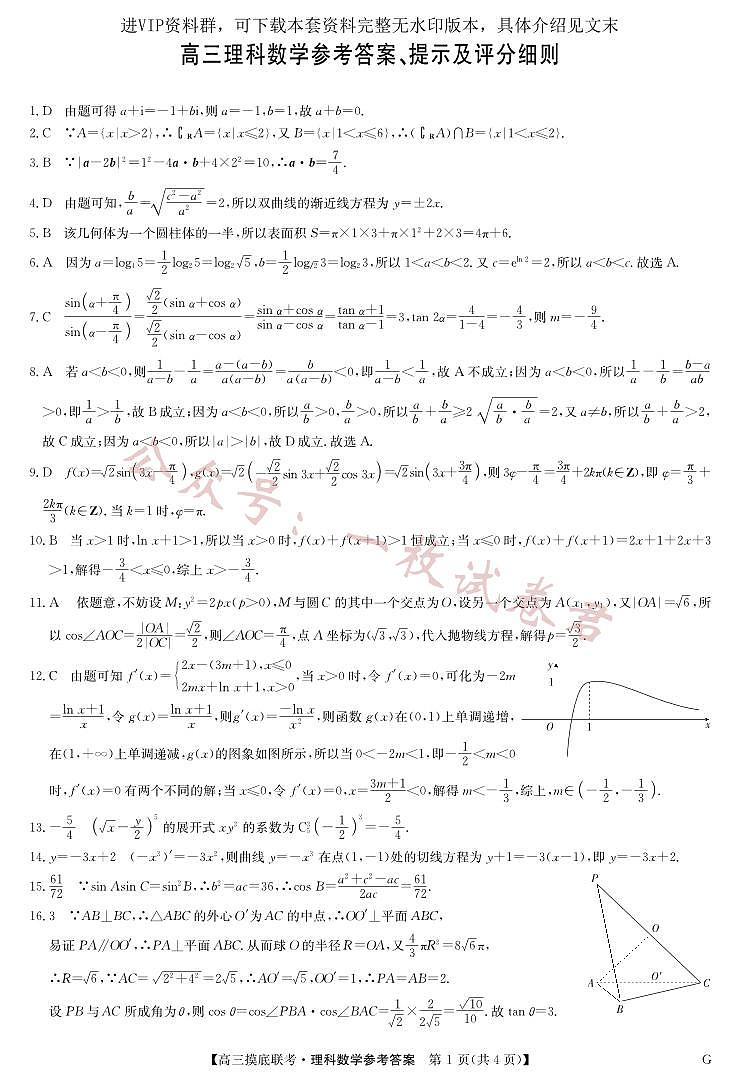 进VIP资料群，可下载本套资料完整无水印版本，具体介绍见文末
高三理科数学参考答案、提示及评分细则
1. D 由题可得 a+i=-1+bi,则 a=-1,b=1,故 a+b=0.
2. C ∵A={x|x>2},∴∁_R A={x|x≤2},又 B={x|1<x≤6},∴(∁_R A)∩B={x|1<x≤2}.
3. B ∵|a-2b|²=1²-4a·b+4×2²=10,∴a·b=7/4.
4. D 由题可知,b/a=√((c²-a²)/a²)=2,所以双曲线的渐近线方程为 y=±2x.
5. B 该几何体为一个圆柱体的一半,所以表面积 S=π×1×3+π×1²+2×3=4π+6.
6. A 因为 a=log₄5=1/2 log₂5=log₂√5,b=1/2 log_√2 3=log₂3,所以 1<a<b<2. 又 c=e^(ln 2)=2,所以 a<b<c. 故选 A.
7. C sin(α+π/4)/sin(α-π/4)=(√2/2(sin α+cos α))/(√2/2(sin α-cos α))=(sin α+cos α)/(sin α-cos α)=(tan α+1)/(tan α-1)=3,tan 2α=4/(1-4)=-4/3,则 m=-9/4.
8. A 若 a<b<0,则 1/(a-b)-1/a=(a-(a-b))/(a(a-b))=b/(a(a-b))<0,即 1/(a-b)<1/a,故 A 不成立;因为 a<b<0,所以 1/a-1/b=(b-a)/ab
>0,即 1/a>1/b,故 B 成立;因为 a<b<0,所以 a/b>0,b/a>0,所以 a/b+b/a≥2√(a/b·b/a)=2,又 a≠b,所以 a/b+b/a>2,
故 C 成立;因为 a<b<0,所以|a|>|b|,故 D 成立. 故选 A.
9. D f(x)=√2sin(3x-π/4),g(x)=√2(-√2/2 sin 3x+√2/2 cos 3x)=√2sin(3x+3π/4),则 3φ-π/4=3π/4+2kπ(k∈Z),即 φ=π/3+
2kπ/3(k∈Z). 当 k=1 时,φ=π.
10. B 当 x>1 时,ln x+1>1,所以当 x>0 时,f(x)+f(x+1)>1 恒成立;当 x≤0 时,f(x)+f(x+1)=2x+1+2x+3
>1,解得-3/4<x≤0,综上 x>-3/4.
11. A 依题意,不妨设 M:y²=2px(p>0),M 与圆 C 的其中一个交点为 O,设另一个交点为 A(x₁,y₁),又|OA|=√6,所
以 cos∠AOC=|OA|/(2|OC|)=√2/2,则∠AOC=π/4,点 A 坐标为(√3,√3),代入抛物线方程,解得 p=√3/2.
12. C 由题可知 f′(x)={2x-(3m+1),x≤0
2mx+ln x+1,x>0,当 x>0 时,令 f′(x)=0,可化为-2m
=(ln x+1)/x,令 g(x)=(ln x+1)/x,则 g′(x)=(-ln x)/x²,则函数 g(x)在(0,1)上单调递增,
在(1,+∞)上单调递减,g(x)的图象如图所示,所以当 0<-2m<1,即-1/2<m<0
时,f′(x)=0 有两个不同的解;当 x≤0,令 f′(x)=0,x=(3m+1)/2<0,解得 m<-1/3,综上,m∈(-1/2,-1/3).
y
1
O 1 x
13. -5/4 (√x-y/2)⁵ 的展开式 xy³ 的系数为 C₅³(-1/2)³=-5/4.
14. y=-3x+2 (-x³)′=-3x²,则曲线 y=-x³ 在点(1,-1)处的切线方程为 y+1=-3(x-1),即 y=-3x+2.
15. 61/72 ∵sin Asin C=sin²B,∴b²=ac=36,∴cos B=(a²+c²-ac)/2ac=61/72.
16. 3 ∵AB⊥BC,∴△ABC 的外心 O′为 AC 的中点,∴OO′⊥平面 ABC,
易证 PA∥OO′,∴PA⊥平面 ABC. 从而球 O 的半径 R=OA,又 4/3 πR³=8√6π,
∴R=√6,∵AC=√(2²+4²)=2√5,∴AO′=√5,OO′=1,∴PA=AB=2.
设 PB 与 AC 所成角为 θ,则 cos θ=cos∠PBA·cos∠BAC=1/√2×2/(2√5)=√10/10. 故 tan θ=3.
P
O
A O′ C
B
公众号：一枚试卷君
【高三摸底联考·理科数学参考答案 第 1 页(共 4 页)】 G